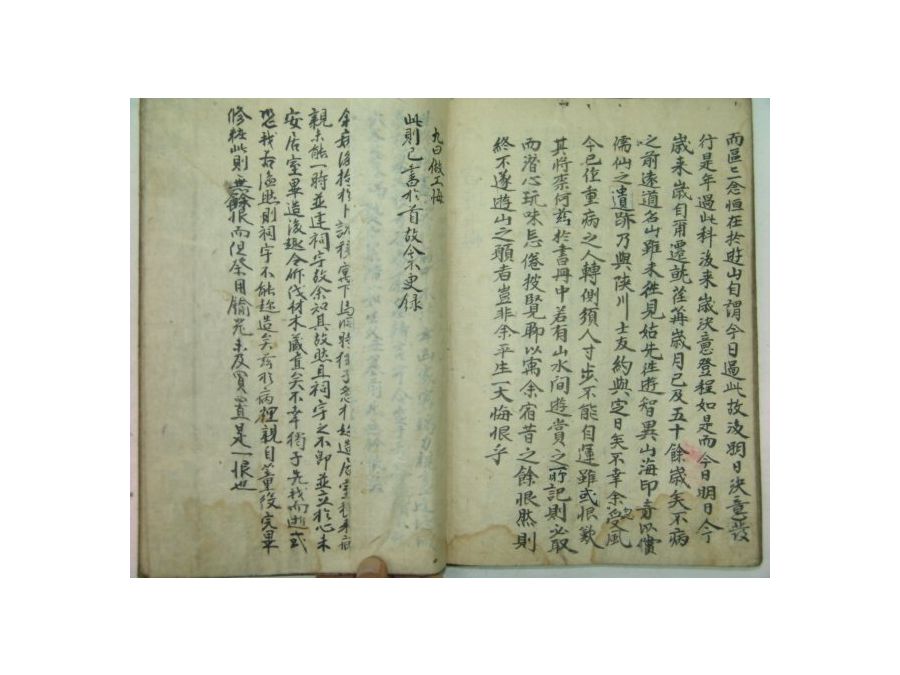 而區二念恒在於遊山自謂今日過此故後明日決意發
行是年過此科後來歲決意登程如是而今日明日今
歲来歲自爾遷就荏苒歲月已及五十餘歲矣不病
之前遠道名山雖未徃見姑先徃遊智異山海印寺以償
儒仙之遺跡乃與陜川士友約與定日矣不幸余忽受風
今已作重病之人轉側須人寸步不能自運雖或恨歎
其將柰何玆於書冊中若有山水間遊賞之所記則必取
而潛心玩味忘倦披覽聊以寓余宿昔之餘恨然則
終不遂遊山之願者豈非余平生一大悔恨乎
九曰做工悔
此則已書於首故今不更録
余
親未能一時並建祠宇故余知其故然且祠宇之不卽並立於心未
安居室畢造後趣令斫伐材木藏置矣不幸獨子先我而逝
我若溘然則祠宇不能造矣於病裡親自董役完畢
修粧此則無餘恨而但祭用鍮器未及買置是一恨也